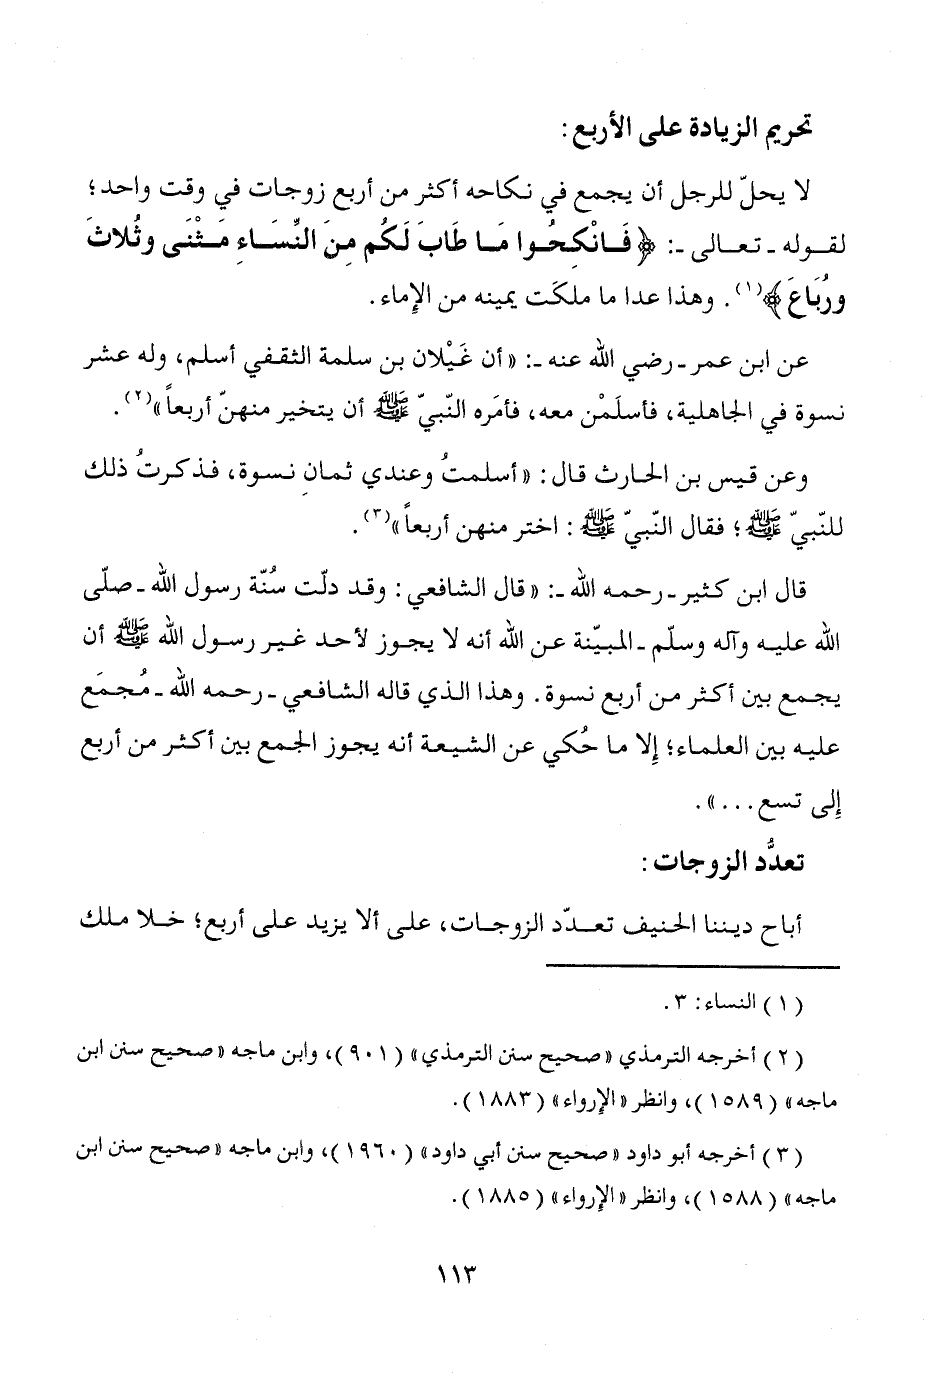 تحريم الزيادة على الأربع:
لا يحلّ للرجل أن يجمع في نكاحه أكثر من أربع زوجات في وقت واحد؛
لقوله ـ تعالى ـ: ﴿فَانْكِحُوا مَا طَابَ لَكُم مِنَ النِّسَاءِ مَثْنَى وثُلاثَ
ورُبَاعَ﴾(١). وهذا عدا ما ملكَت يمينه من الإماء.
عن ابن عمر ـ رضي الله عنه ـ: «أن غَيْلان بن سلمة الثقفي أسلم، وله عشر
نسوة في الجاهلية، فأسلَمْن معه، فأمَره النّبيّ ﷺ أن يتخير منهنّ أربعاً»(٢).
وعن قيس بن الحارث قال: «أسلمتُ وعندي ثمانِ نسوة، فذكرتُ ذلك
للنّبيّ ﷺ؛ فقال النّبيّ ﷺ: اختر منهن أربعاً»(٣).
قال ابن كثير ـ رحمه الله ـ: «قال الشافعي: وقد دلّت سُنّة رسول الله ـ صلّى
الله عليه وآله وسلّم ـ المبيّنة عن الله أنه لا يجوز لأحد غير رسول الله ﷺ أن
يجمع بين أكثر من أربع نسوة. وهذا الذي قاله الشافعي ـ رحمه الله ـ مُجمَع
عليه بين العلماء؛ إِلا ما حُكي عن الشيعة أنه يجوز الجمع بين أكثر من أربع
إِلى تسع...».
تعدُّد الزوجات:
أباح ديننا الحنيف تعدّد الزوجات، على ألا يزيد على أربع؛ خلا ملك
(١) النساء: ٣.
(٢) أخرجه الترمذي «صحيح سنن الترمذي» (٩٠١)، وابن ماجه «صحيح سنن ابن
ماجه» (١٥٨٩)، وانظر «الإرواء» (١٨٨٣).
(٣) أخرجه أبو داود «صحيح سنن أبي داود» (١٩٦٠)، وابن ماجه «صحيح سنن ابن
ماجه» (١٥٨٨)، وانظر «الإرواء» (١٨٨٥).
١١٣